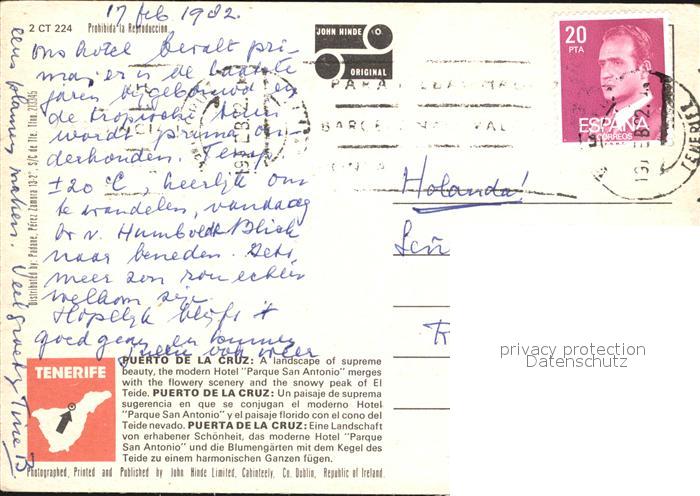 17 feb 1982.
2 CT 224 Prohibida la Reproducción
Ons hotel bevalt pri-
ma, er is de laatste
jaren bijgebouwd en
de tropische tuin
wordt prima on-
derhouden. Temp.
±20 °C, heerlijk om
te wandelen, vandaag
v. Humboldt Blick
naar beneden. Iets
meer zon zou echter
welkom zijn.
Hopelijk blijft 't
goed gaan en kunnen
jullie ook weer
eens plannen maken. Veel groetjes
Distributed by: Padane, Pérez Zamora 13-2°. S/C de Tfe. Tfno.
JOHN HINDE
ORIGINAL
20
PTA
ESPAÑA
CORREOS
PARA
BARCELONA
Holanda!
Señ
privacy protection
Datenschutz
TENERIFE
PUERTO DE LA CRUZ: A landscape of supreme
beauty, the modern Hotel "Parque San Antonio" merges
with the flowery scenery and the snowy peak of El
Teide. PUERTO DE LA CRUZ: Un paisaje de suprema
sugerencia en que se conjugan el moderno Hotel
"Parque San Antonio" y el paisaje florido con el cono del
Teide nevado. PUERTA DE LA CRUZ: Eine Landschaft
von erhabener Schönheit, das moderne Hotel "Parque
San Antonio" und die Blumengärten mit dem Kegel des
Teide zu einem harmonischen Ganzen fügen.
Photographed, Printed and Published by John Hinde Limited, Cabinteely, Co. Dublin, Republic of Ireland.